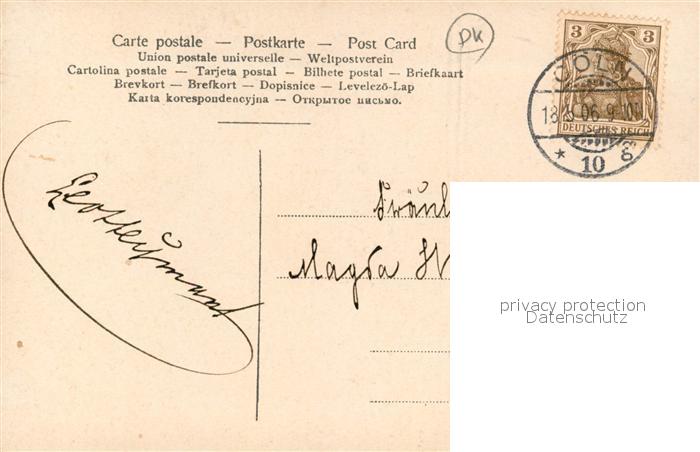 DK
Carte postale — Postkarte — Post Card
Union postale universelle — Weltpostverein
Cartolina postale — Tarjeta postal — Bilhete postal — Briefkaart
Brevkort — Brefkort — Dopisnice — Levelező-Lap
Karta korespondencyjna — Открытое письмо.
3 3
CÖLN
06. 9-10
DEUTSCHES REICH
* 10 g
Fräul
Magda
privacy protection
Datenschutz